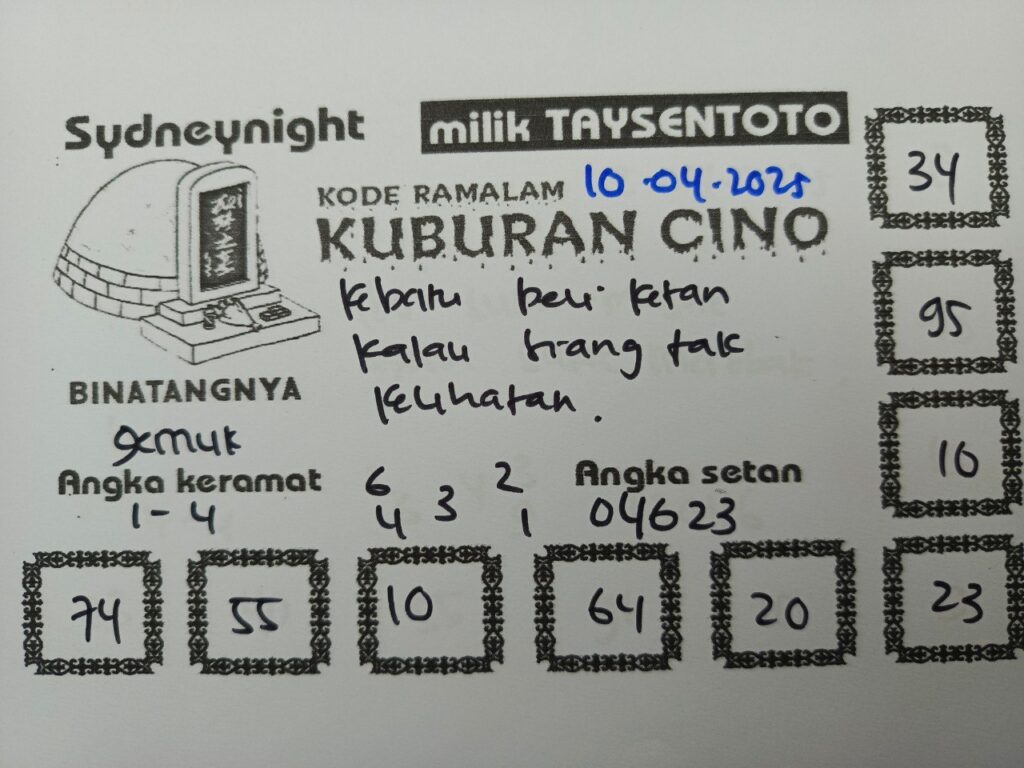 Sydneynight
milik TAYSENTOTO
KODE RAMALAM 10.04.2025
KUBURAN CINO
kebatu beli ketan
kalau trang tak
kelihatan.
BINATANGNYA
semut
Angka keramat
1-4
6 2
4 3 1
Angka setan
04623
34
95
16
74 55 10 64 20 23